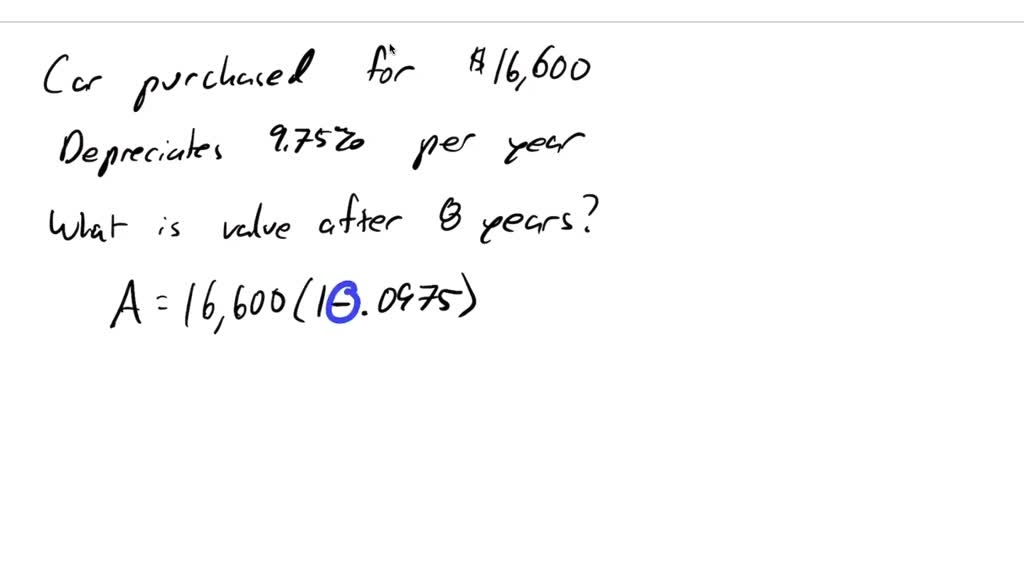 Car purchased for $16,600
Depreciates 9.75% per year
What is value after 8 years?
A = 16,600(1-.0975)